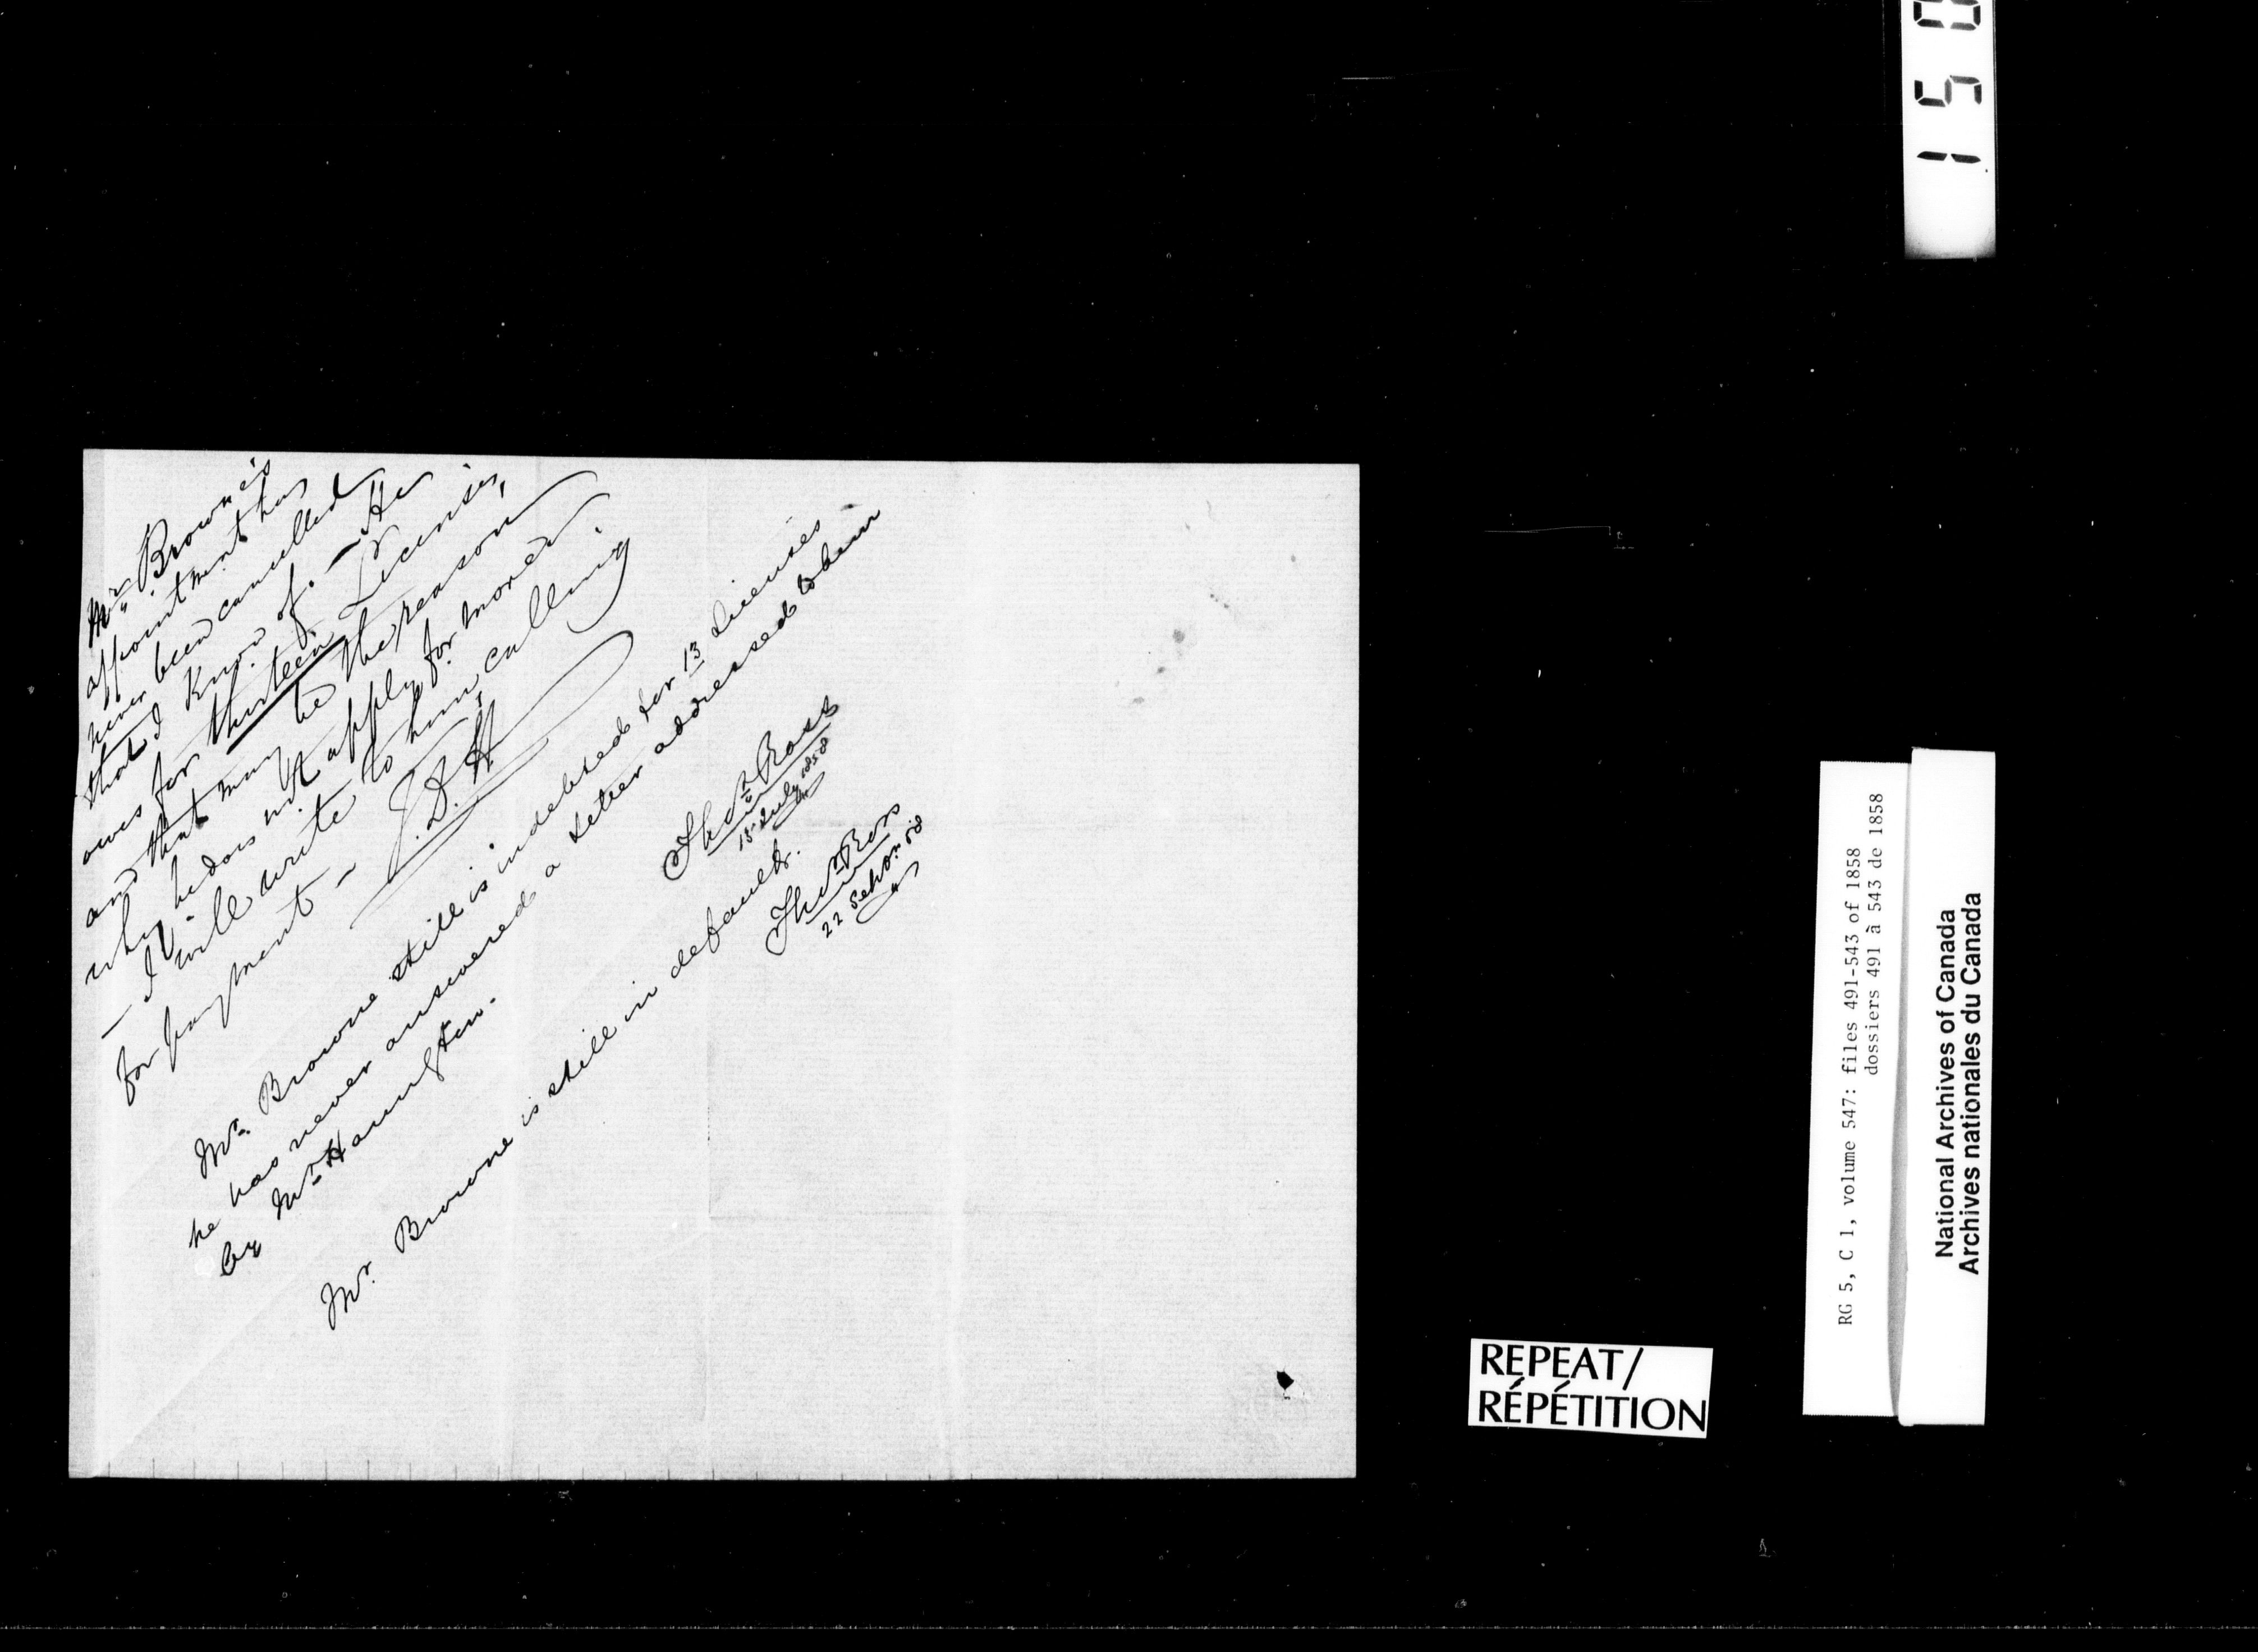 Mr. Browne's
appointment has
never been cancelled
that I know of. — He
owes for thirteen Licenses,
and that may be the reason
why he does not apply for more
— I will write to him, calling
for payment —
J.D.H
Mr. Browne still is indebted for 13 Licenses
he has never answered a letter addressed to him
by Mr. Haughton.
Thos. Ross
15 July 1858
Mr. Browne is still in default.
Thos. Ross
22 Sehon. 58
1 5 0
RG 5, C 1, volume 547: files 491-543 of 1858
dossiers 491 à 543 de 1858
National Archives of Canada
Archives nationales du Canada
REPEAT/
RÉPÉTITION